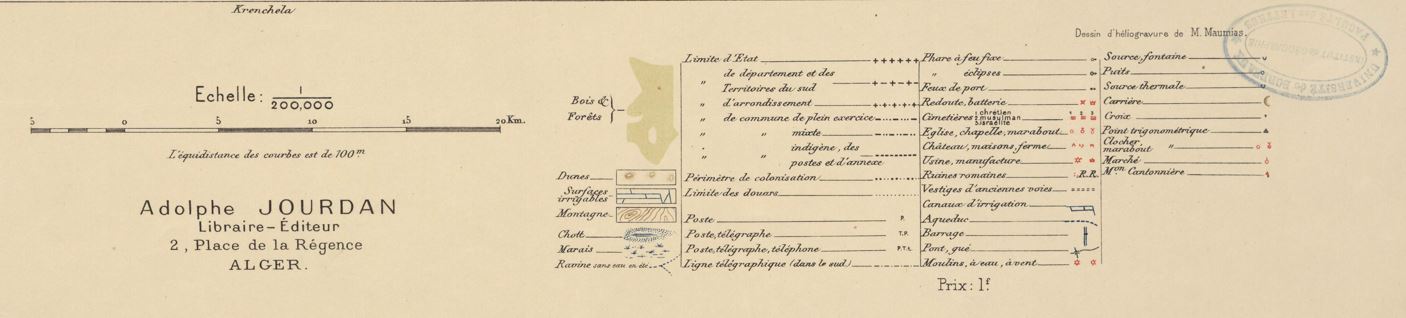 Krenchela
Echelle: 1/200,000
5 0 5 10 15 20 Km.
L'équidistance des courbes est de 100m
Adolphe JOURDAN
Libraire-Éditeur
2, Place de la Régence
ALGER.
Bois &
Forêts
Dunes
Surfaces
irrigables
Montagne
Chott
Marais
Ravine sans eau en été
Limite d'Etat
" de département et des
Territoires du sud
" d'arrondissement
" de commune de plein exercice
" " mixte
" " indigène, des
postes et d'annexe
Périmètre de colonisation
Limite des douars
Poste P.
Poste, télégraphe T.P.
Poste, télégraphe, téléphone P.T.t.
Ligne télégraphique (dans le sud)
Dessin d'héliogravure de M. Maumias.
Phare à feu fixe
" éclipses
Feux de port
Redoute, batterie
Cimetières 1 chrétien 2 musulman 3 israélite 1 2 3
Eglise, chapelle, marabout
Château, maisons, ferme
Usine, manufacture
Ruines romaines R.R.
Vestiges d'anciennes voies
Canaux d'irrigation
Aqueduc
Barrage
Pont, gué
Moulins, à eau, à vent
Source, fontaine
Puits
Source thermale
Carrière
Croix
Point trigonométrique
Clocher,
marabout "
Marché
Mon Cantonnière
Prix: 1f
UNIVERSITÉ de BORDEAUX
FACULTÉ des LETTRES
INSTITUT de GÉOGRAPHIE